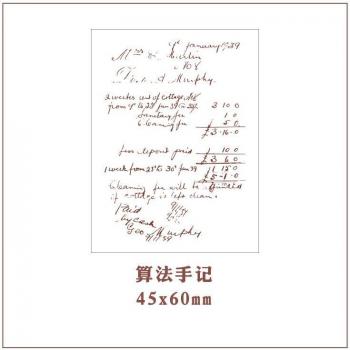 1st January 39
Mrs
No 8
Murphy
2 weeks rent of cottage No 8
from 9th to 23 Jan 39 to 3 10 0
Sanitary fee 1 0
Cleaning fee 5 0
£3 . 16 . 0
less deposit paid 1 0 0
£3 6 0
1 week from 23rd to 30th Jan 39 1 15 0
£5 - 1 . 0
Cleaning fee will be
if cottage is left clean.
Paid
by cash
Geo Murphy
9/1/39
算法手记
45x60mm